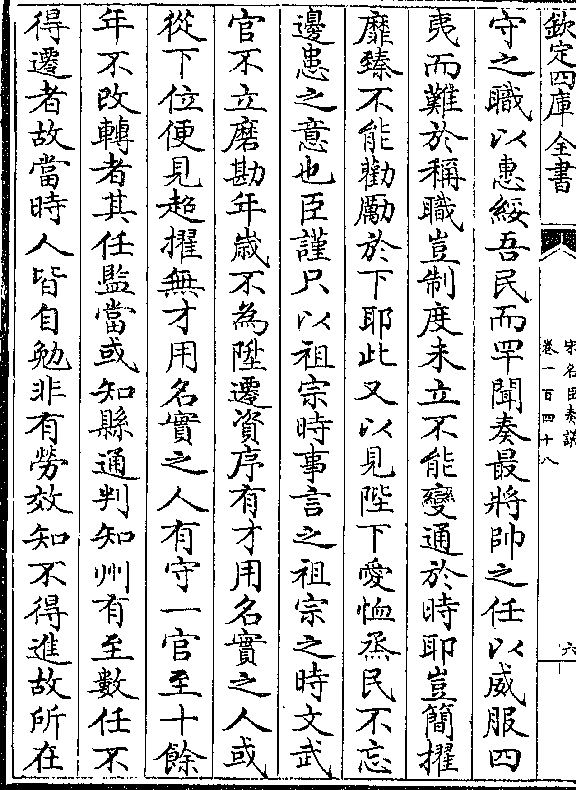 欽定四庫全書
宋名臣奏議
卷一百四十八
六
守之職以惠綏吾民而罕聞奏最將帥之任以威服四
夷而難於稱職豈制度未立不能變通於時耶豈簡擢
靡臻不能勸勵於下耶此又以見陛下愛恤烝民不忘
邊患之意也臣謹只以祖宗時事言之祖宗之時文武
官不立磨勘年歲不為陞遷資序有才用名實之人或
從下位便見超擢無才用名實之人有守一官至十餘
年不改轉者其任監當或知縣通判知州有至數任不
得遷者故當時人皆自勉非有勞效知不得進故所在